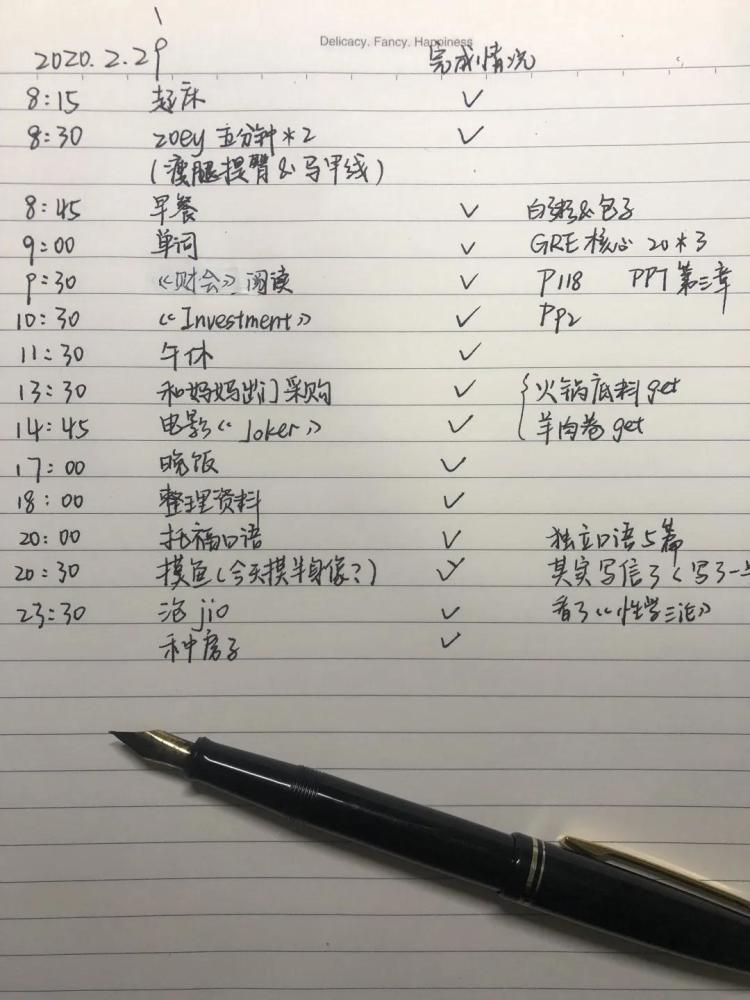 Delicacy. Fancy. Happiness
2020.2.29 完成情况
8:15 起床 ✓
8:30 zoey 五分钟*2 ✓
(瘦腿提臀&马甲线)
8:45 早餐 ✓ 白粥&包子
9:00 单词 ✓ GRE核心 20*3
9:30 《财会》阅读 ✓ P118 PPT第三章
10:30 《Investment》 ✓ PP2
11:30 午休 ✓
13:30 和妈妈出门采购 ✓ {火锅底料get
14:45 电影《Joker》 ✓ 羊肉卷get
17:00 晚饭 ✓
18:00 整理资料 ✓
20:00 托福口语 ✓ 独立口语5篇
20:30 摸鱼(今天摸半身像?) ✓ 其实写信了(写了一
23:30 泡jio ✓ 看了《性学三论》
种房子 ✓